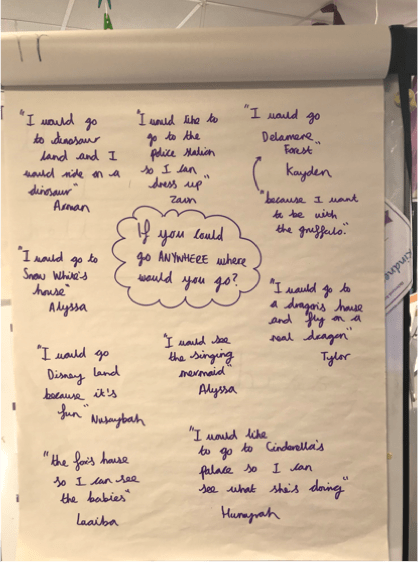 "I would go
to dinosaur
land and I
would ride on a
dinosaur"
Arman
"I would like to
go to the
police station
so I can
dress up"
Zain
"I would go
Delamere
Forest"
Kayden
"because I want
to be with
the gruffulo."
If you could
go ANYWHERE where
would you go?
"I would go to
Snow White's
house"
Alyssa
"I would go to
a dragon's house
and fly on a
real dragon"
Tylor
"I would go
Disney land
because it's
fun"
Nusaybah
"I would see
the singing
mermaid"
Alyssa
"the fox's house
so I can see
the babies"
Laaiba
"I would like
to go to Cinderella's
palace so I can
see what she's doing"
Humayrah